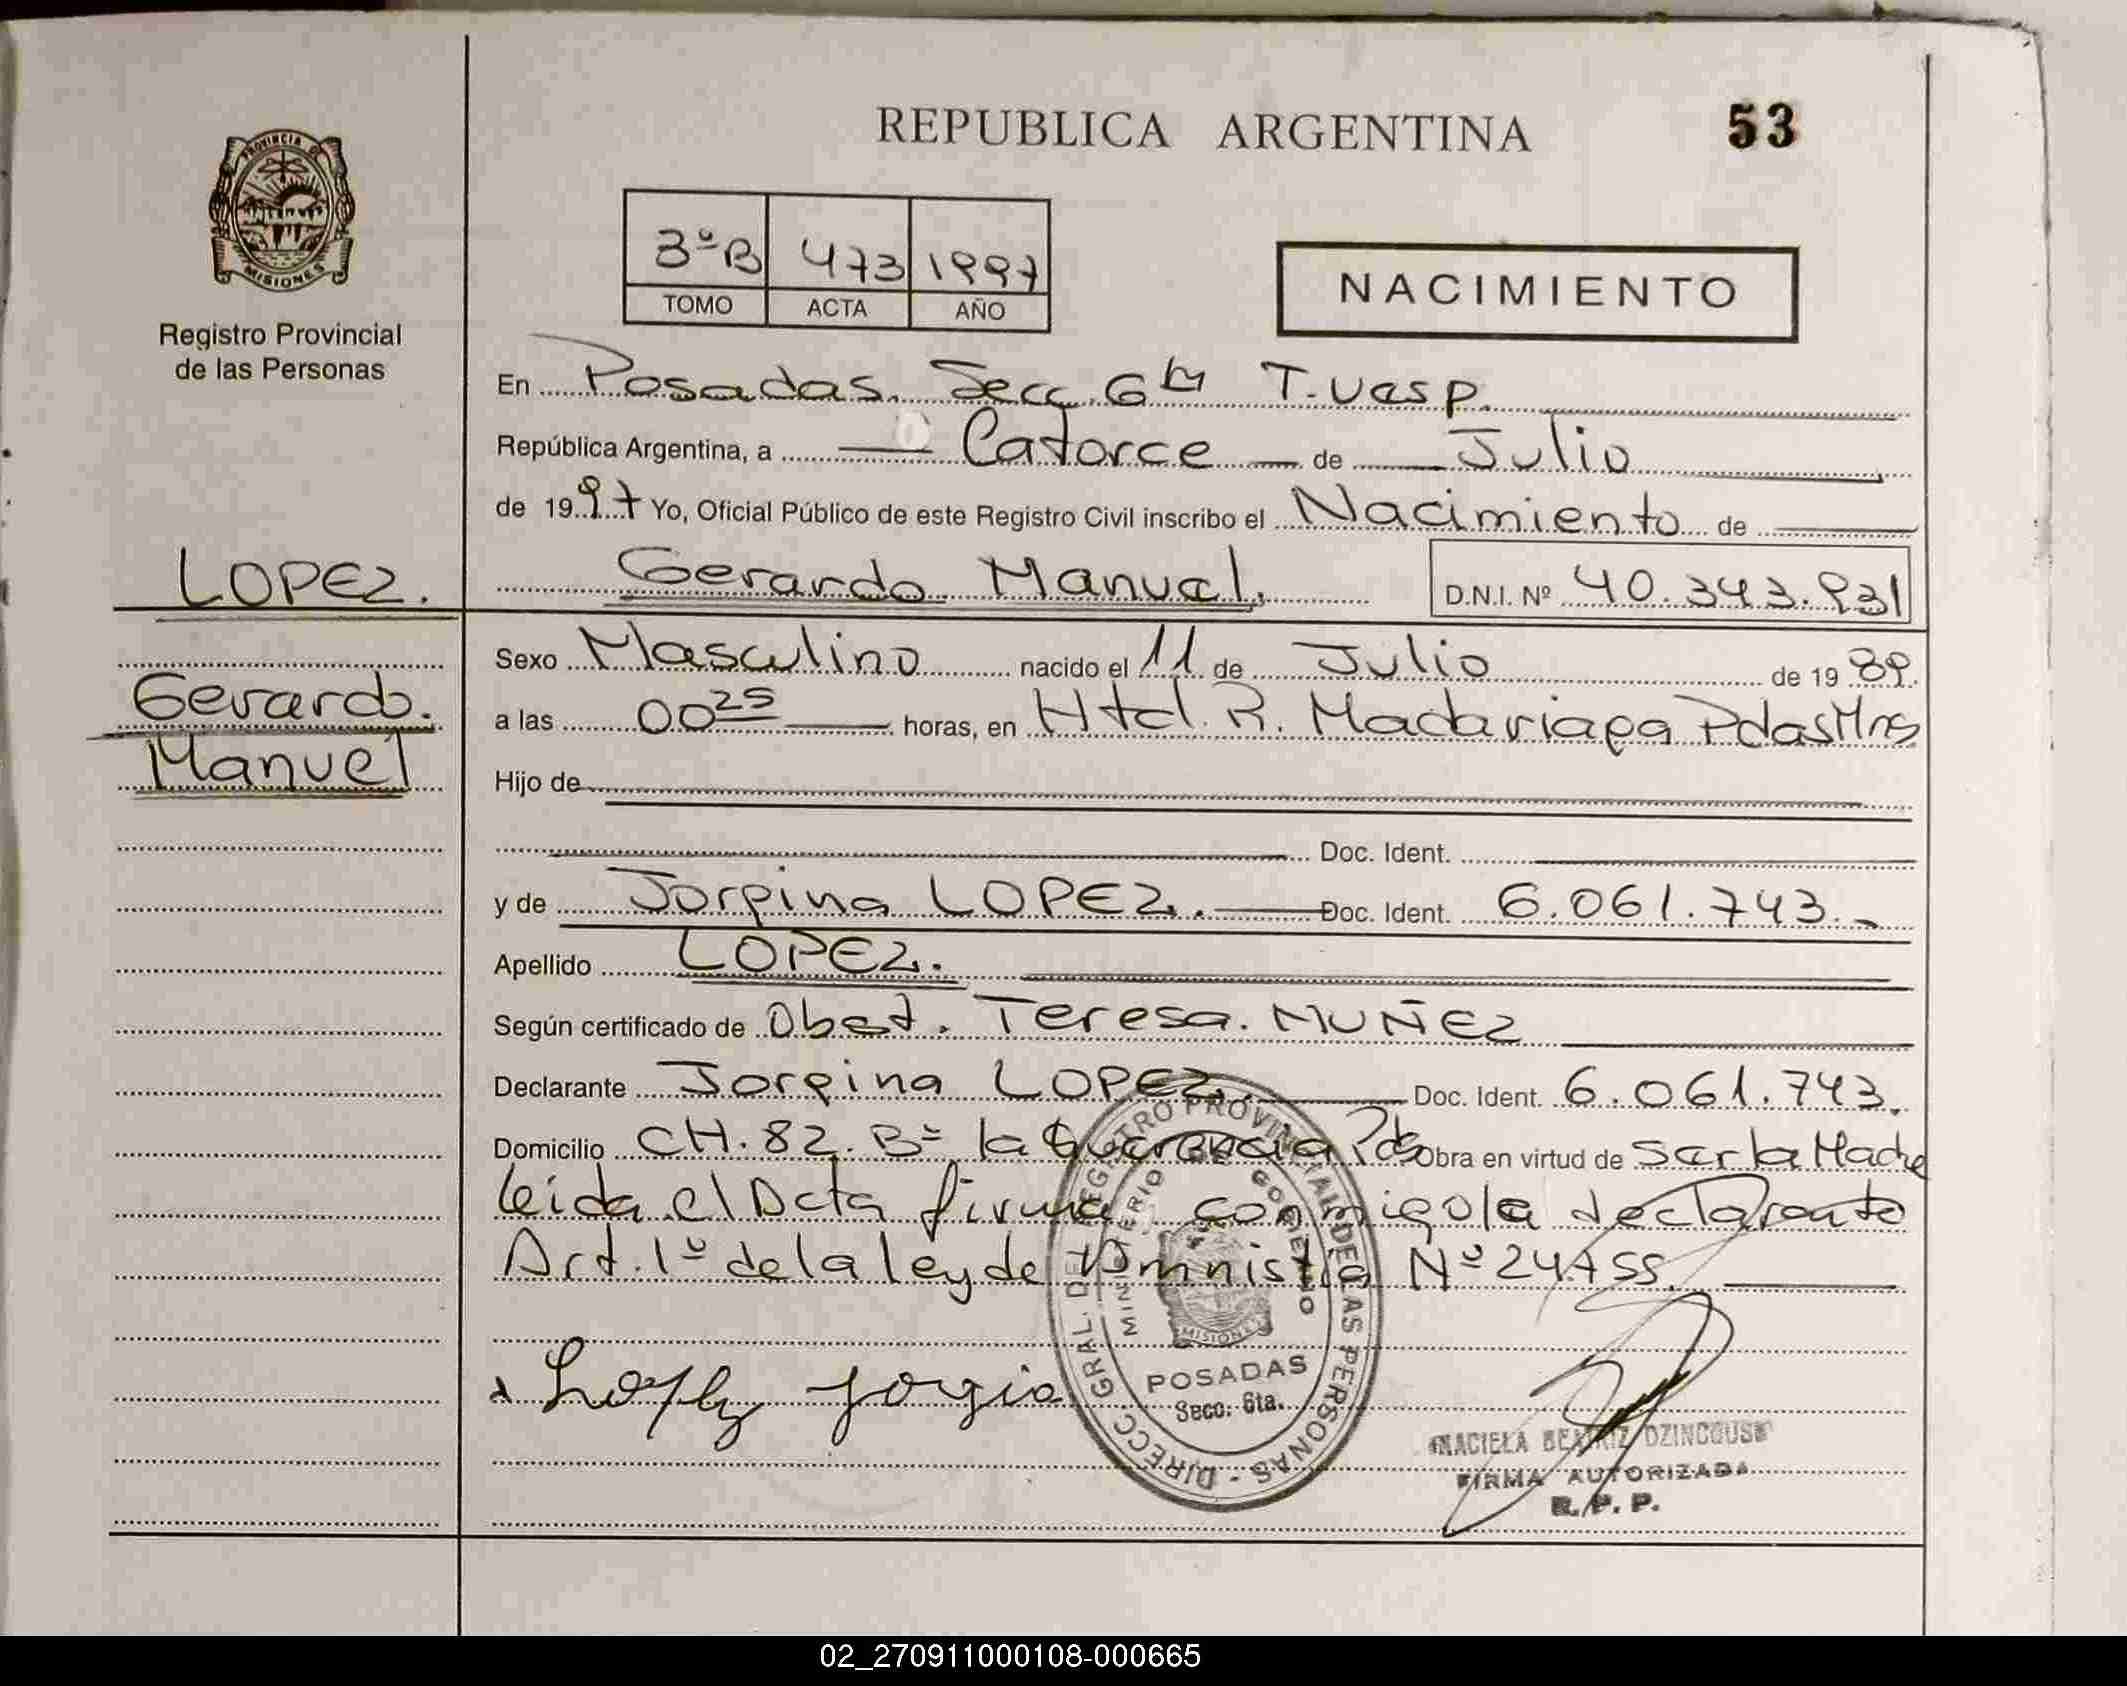 REPUBLICA ARGENTINA
53
PROVINCIA DE
MISIONES
Registro Provincial
de las Personas
3º B 473 1997
TOMO ACTA AÑO
NACIMIENTO
En Posadas. Secc. 6ta T. Vesp.
República Argentina, a Catorce de Julio
de 1997 Yo, Oficial Público de este Registro Civil inscribo el Nacimiento de
LOPEZ.
Gerardo Manuel. D.N.I. Nº 40.343.931
Gerardo.
Manuel
Sexo Masculino nacido el 11 de Julio de 1989.
a las 00 25 horas, en Htal. R. Madariaga Pdas Mns
Hijo de
Doc. Ident.
y de Jorgina LOPEZ. Doc. Ident. 6.061.743.
Apellido LOPEZ.
Según certificado de Obst. Teresa. MUÑEZ
Declarante Jorgina LOPEZ. Doc. Ident. 6.061.743.
Domicilio CH. 82. Bº la Querencia Pdas Obra en virtud de Ser la Madre
leida el Acta firma conmigo la declarante
Art. 1º de la ley de Amnistia Nº 24.755.
DIRECC. GRAL. DEL REGISTRO PROVINCIAL DE LAS PERSONAS -
MINISTERIO DE GOBIERNO
MISIONES
POSADAS
Secc. 6ta.
BEATRIZ
FIRMA AUTORIZADA
R. P. P.
02_270911000108-000665